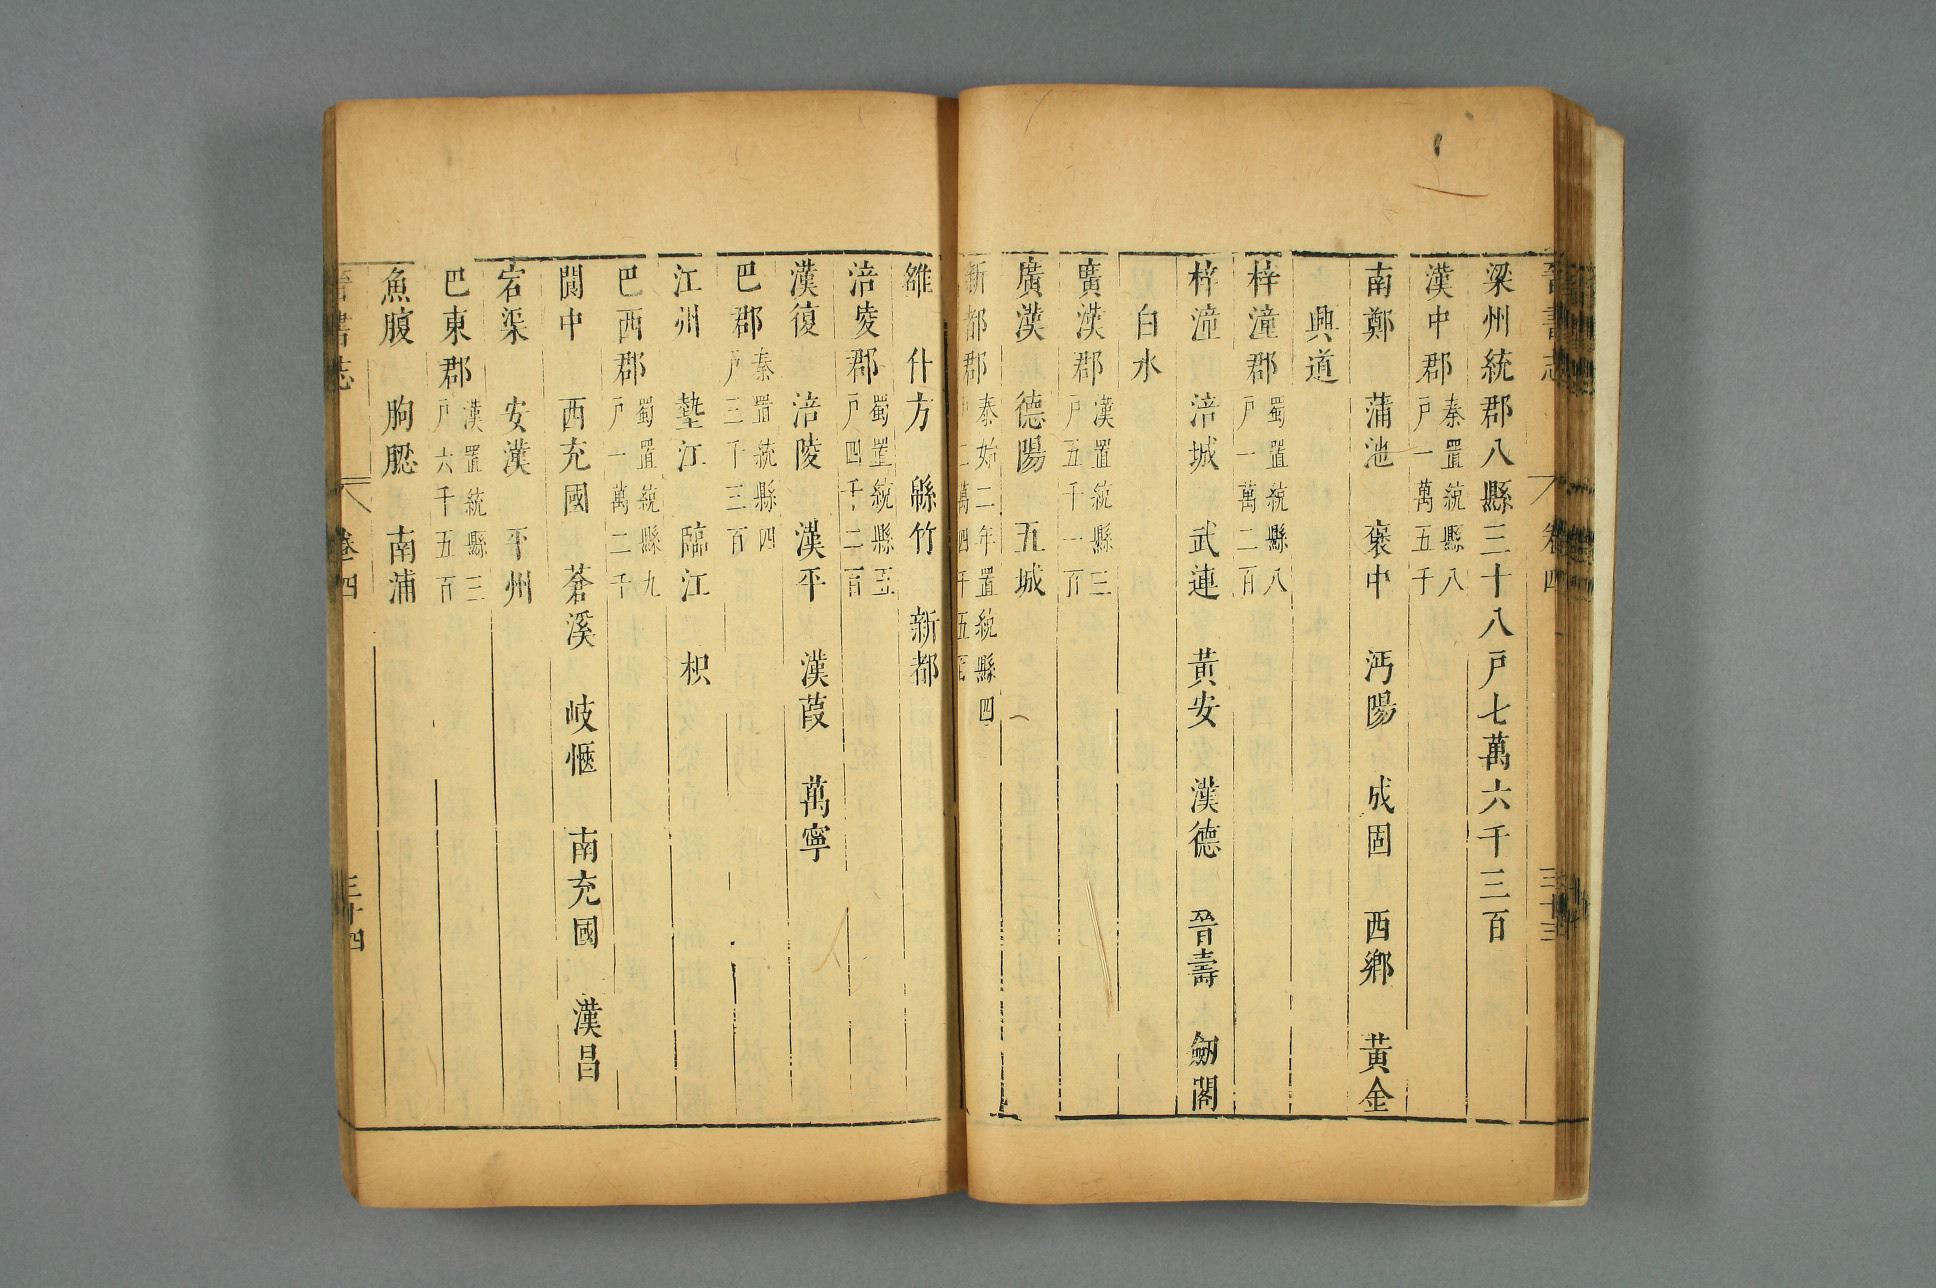 晉書志 卷四 三十三
梁州統郡八縣三十八戶七萬六千三百
漢中郡 秦置統縣八戶一萬五千
南鄭 蒲池 褒中 沔陽 成固 西鄉 黃金
興道
梓潼郡 蜀置統縣八戶一萬二百
梓潼 涪城 武連 黃安 漢德 晉壽 劒閣
白水
廣漢郡 漢置統縣三戶五千一百
廣漢 德陽 五城
新都郡 泰始二年置統縣四戶二萬四千五百
雒 什方 緜竹 新都
涪陵郡 蜀置統縣五戶四千二百
漢復 涪陵 漢平 漢葭 萬寧
巴郡 秦置統縣四戶三千三百
江州 墊江 臨江 枳
巴西郡 蜀置統縣九戶一萬二千
閬中 西充國 蒼溪 岐愜 南充國 漢昌
宕渠 安漢 平州
巴東郡 漢置統縣三戶六千五百
魚腹 朐䏰 南浦
晉書志 卷四 三十四